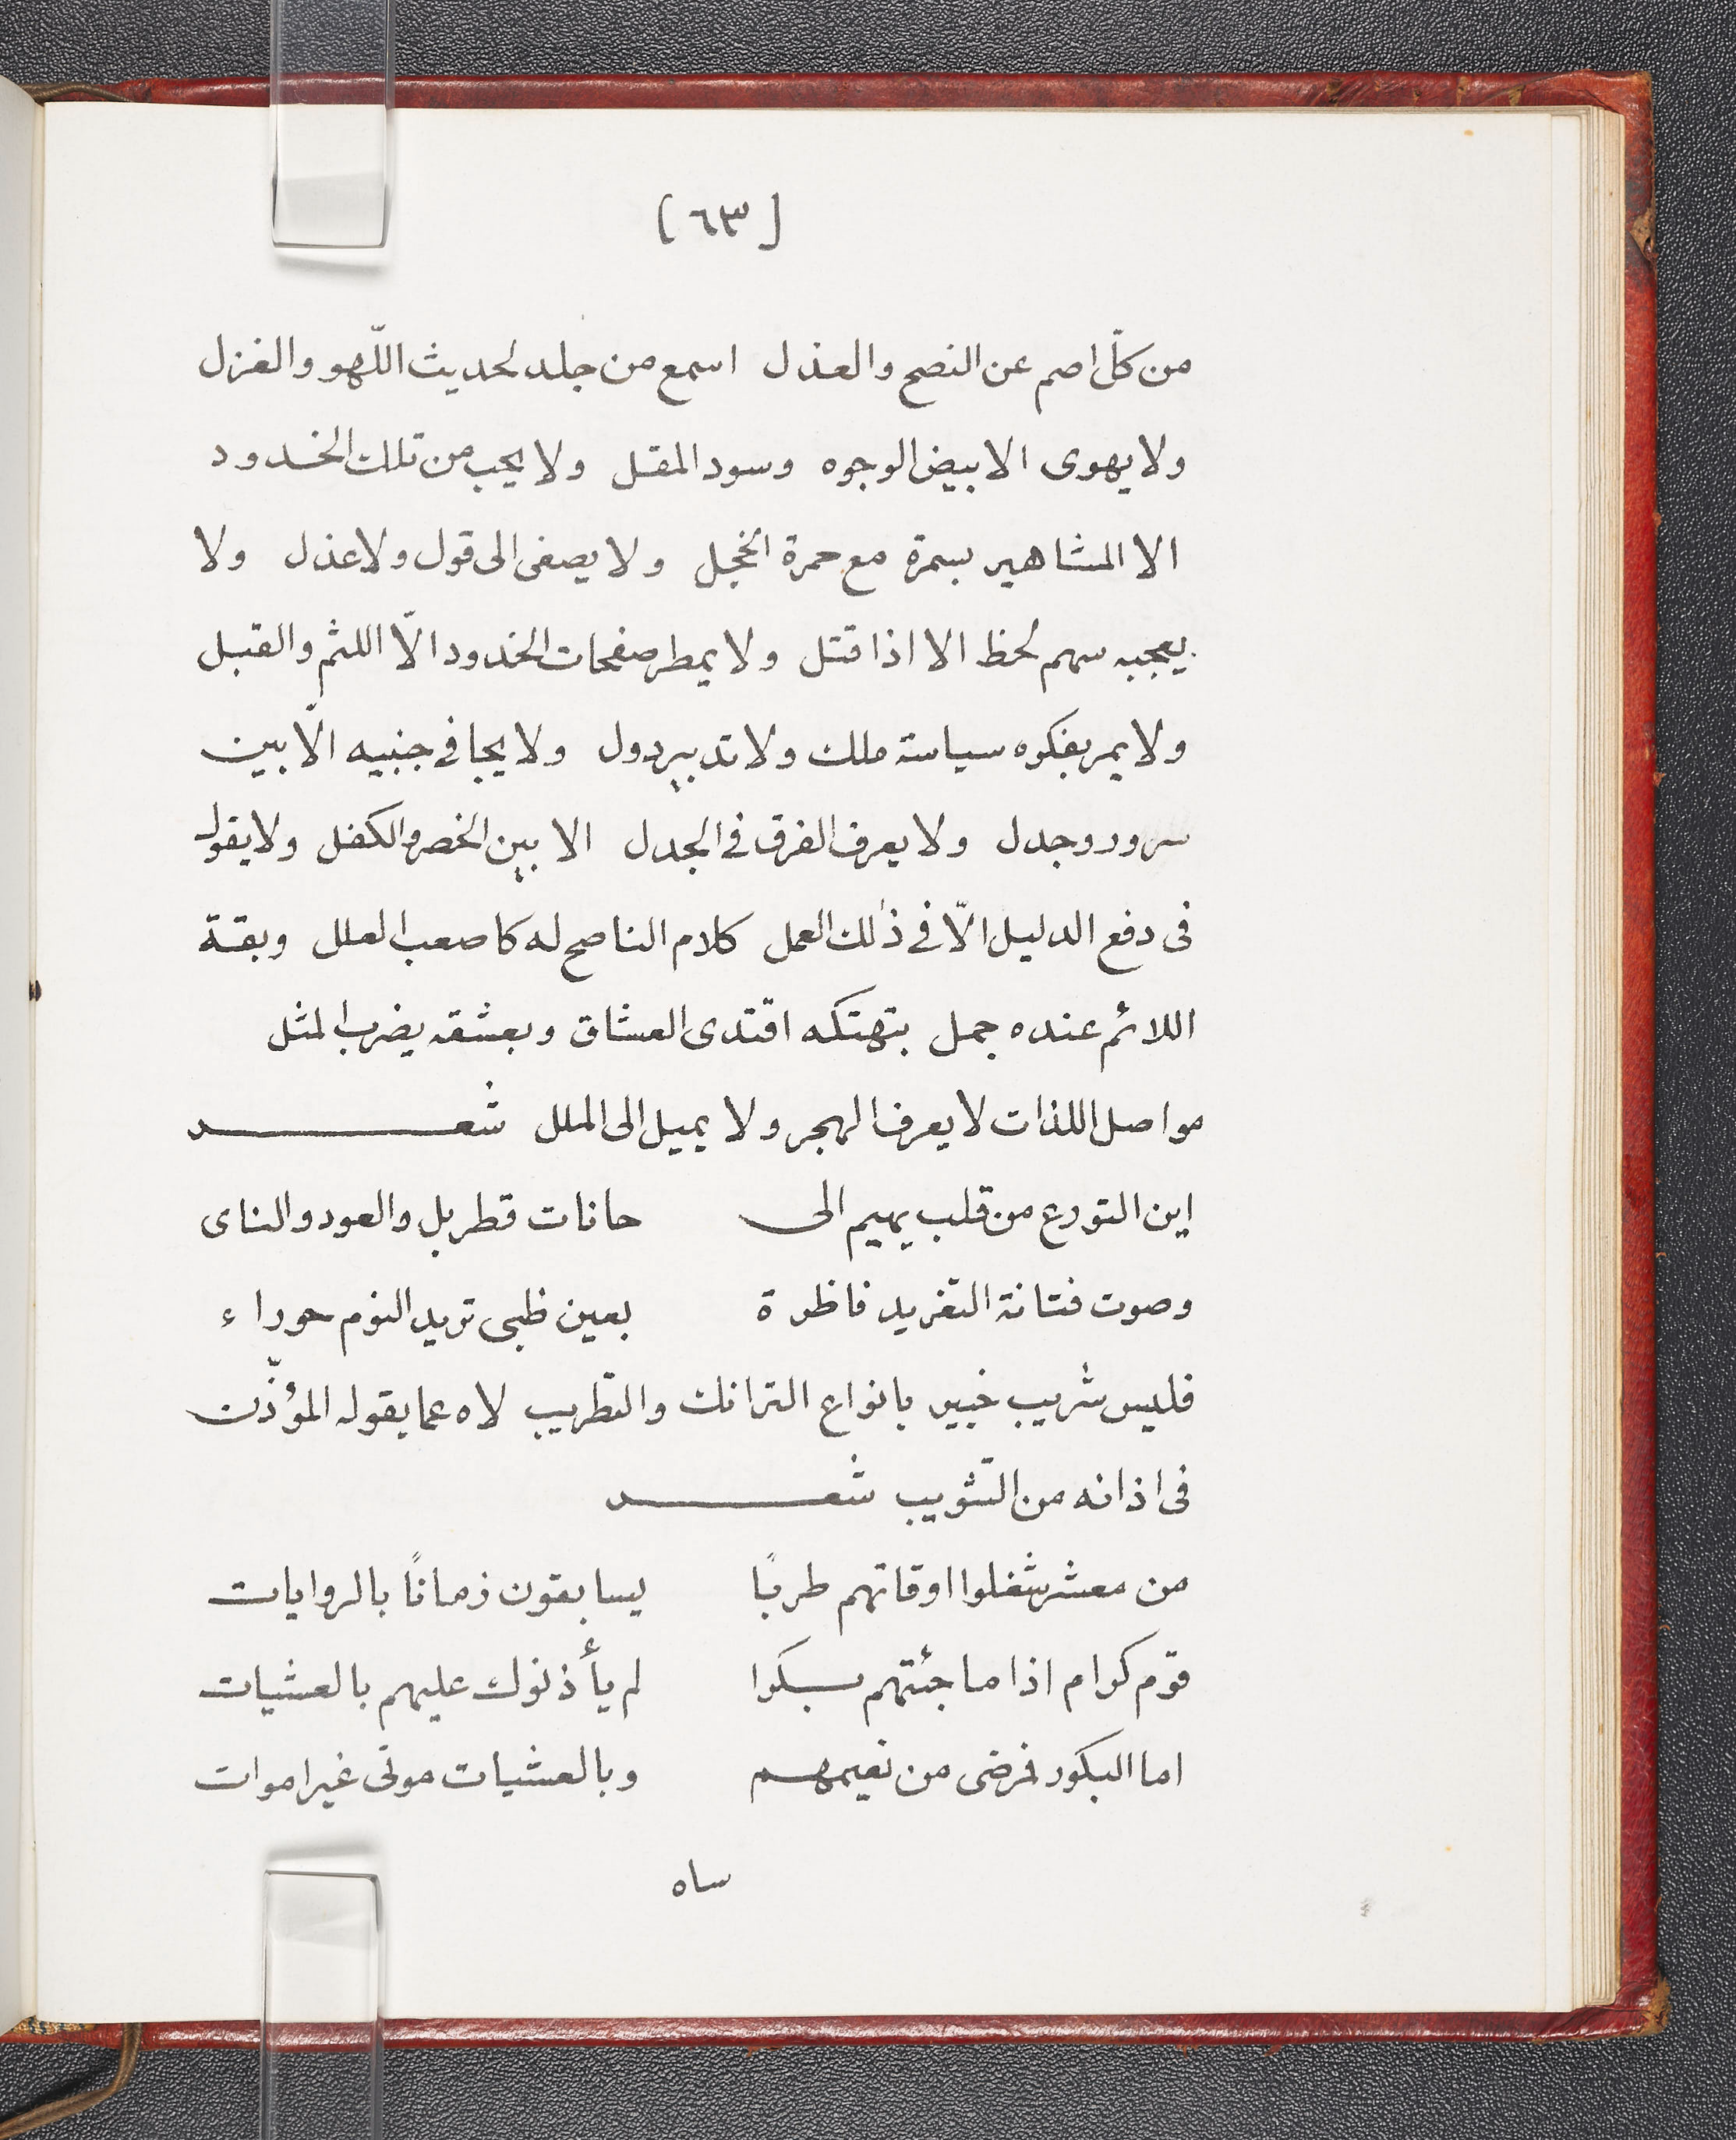 [٦٣]
من كلّ اصم عن النصح والعذل اسمع من جلد لحديث اللّهو والغزل
ولا يهوى الا بيض الوجوه وسود المقل ولا يحب من تلك الخدود
الا المشاهير بسمرة مع حمرة الخجل ولا يصغى الى قول ولا عذل ولا
يعجبه سهم لحظ الا اذا قتل ولا يمطر صفحات الخدود الّا اللثم والقبل
ولا يمر بفكره سياسة ملك ولا تدبير دول ولا يجافى جنبيه الّا بين
سرور وجدل ولا يعرف الفرق فى الجدل الا بين الخصر والكفل ولا يقول
فى دفع الدليل الّا فى ذلك العمل كلام الناصح له كاصعب العلل وبقة
اللائم عنده جمل بتهتكه اقتدى العشاق وبعشقه يضرب المثل
مواصل اللذات لا يعرف الهجر ولا يميل الى الملل شعـــر
اين التورع من قلب يهيم الى حانات قطربل والعود والناى
وصوت فتانة التغريد ناظرة بعين ظبى تريد النوم حوراء
فليس شريب خبير بانواع الترانك والتطريب لاه عما يقوله المؤذّن
فى اذانه من التثويب شعـــر
من معشر شغلوا اوقاتهم طربًا يسابقون زمانًا بالروايات
قوم كرام اذا ما جئتهم سكروا لم يأذنوك عليهم بالعشيات
اما البكور فمرضى من نعيمهم وبالعشيات موتى غير اموات
ساه